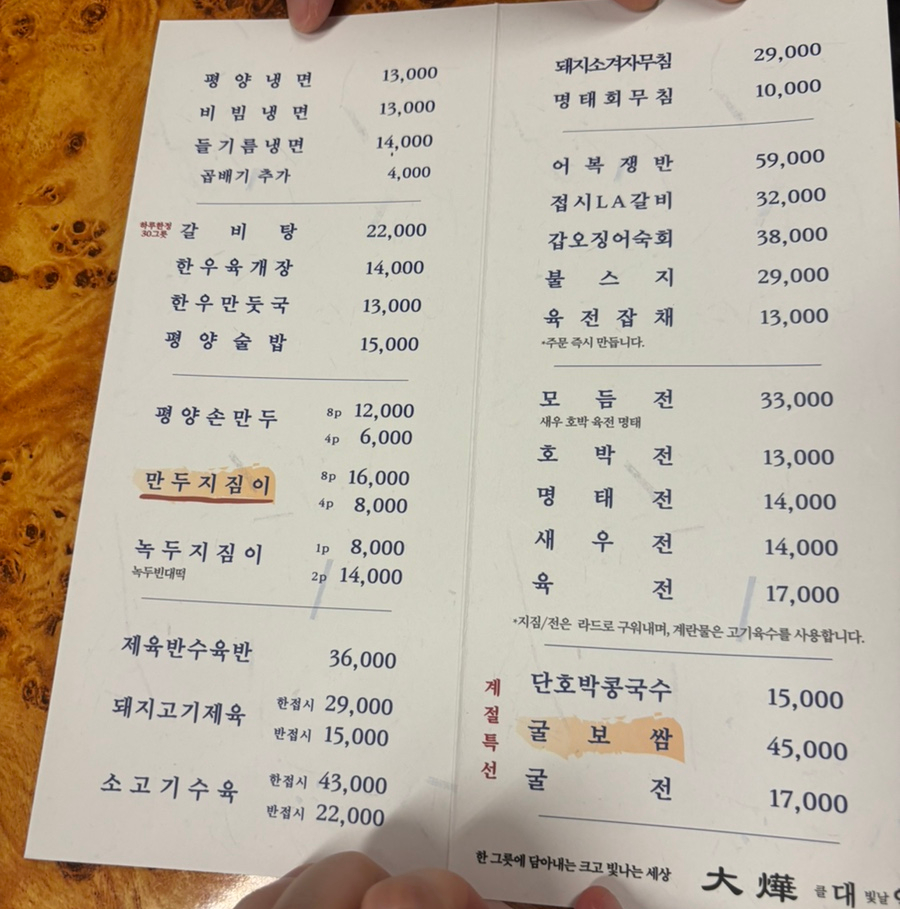 평양냉면 13,000
비빔냉면 13,000
들기름냉면 14,000
곱배기 추가 4,000
하루한정
30그릇
갈비탕 22,000
한우육개장 14,000
한우만둣국 13,000
평양술밥 15,000
평양손만두 8p 12,000
4p 6,000
만두지짐이 8p 16,000
4p 8,000
녹두지짐이 1p 8,000
녹두빈대떡 2p 14,000
제육반수육반 36,000
돼지고기제육 한접시 29,000
반접시 15,000
소고기수육 한접시 43,000
반접시 22,000
돼지소겨자무침 29,000
명태회무침 10,000
어복쟁반 59,000
접시LA갈비 32,000
갑오징어숙회 38,000
불스지 29,000
육전잡채 13,000
*주문 즉시 만듭니다.
모듬전 33,000
새우 호박 육전 명태
호박전 13,000
명태전 14,000
새우전 14,000
육전 17,000
*지짐/전은 라드로 구워내며, 계란물은 고기육수를 사용합니다.
계절특선
단호박콩국수 15,000
굴보쌈 45,000
굴전 17,000
한 그릇에 담아내는 크고 빛나는 세상
大燁 클 대 빛날